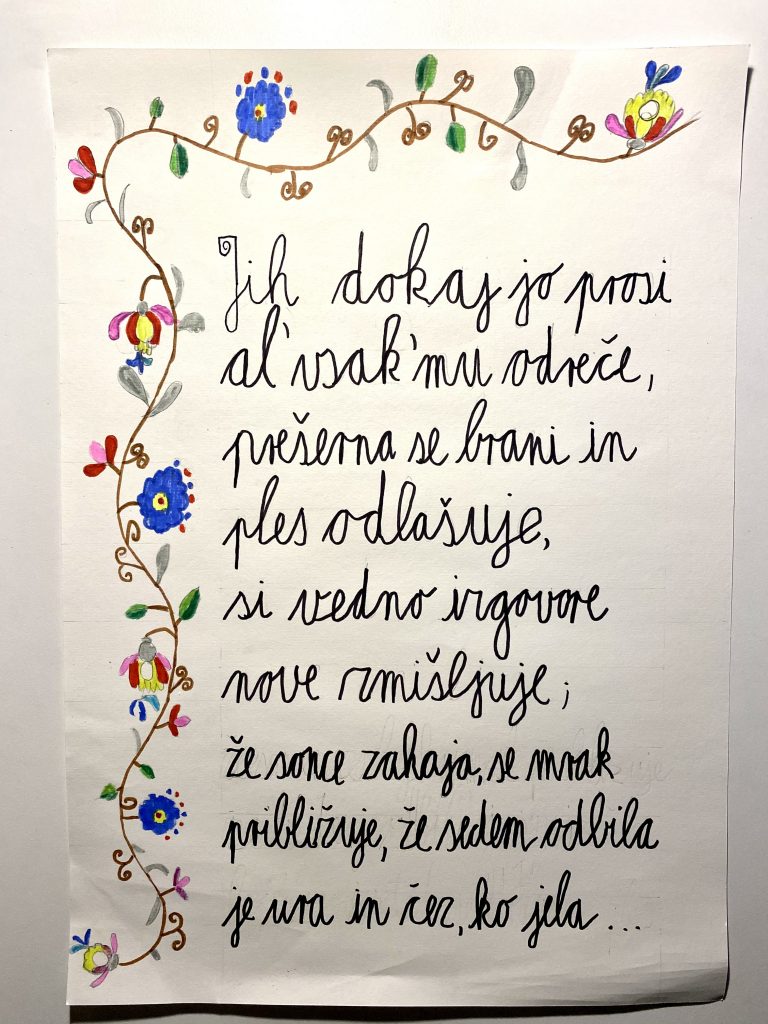 Jih dokaj jo prosi
al' vsak'mu odreče,
prešerna se brani in
ples odlašuje,
si vedno izgovore
nove zmišljuje;
že sonce zahaja, se mrak
približuje, že sedem odbila
je ura in čez, ko jela ...